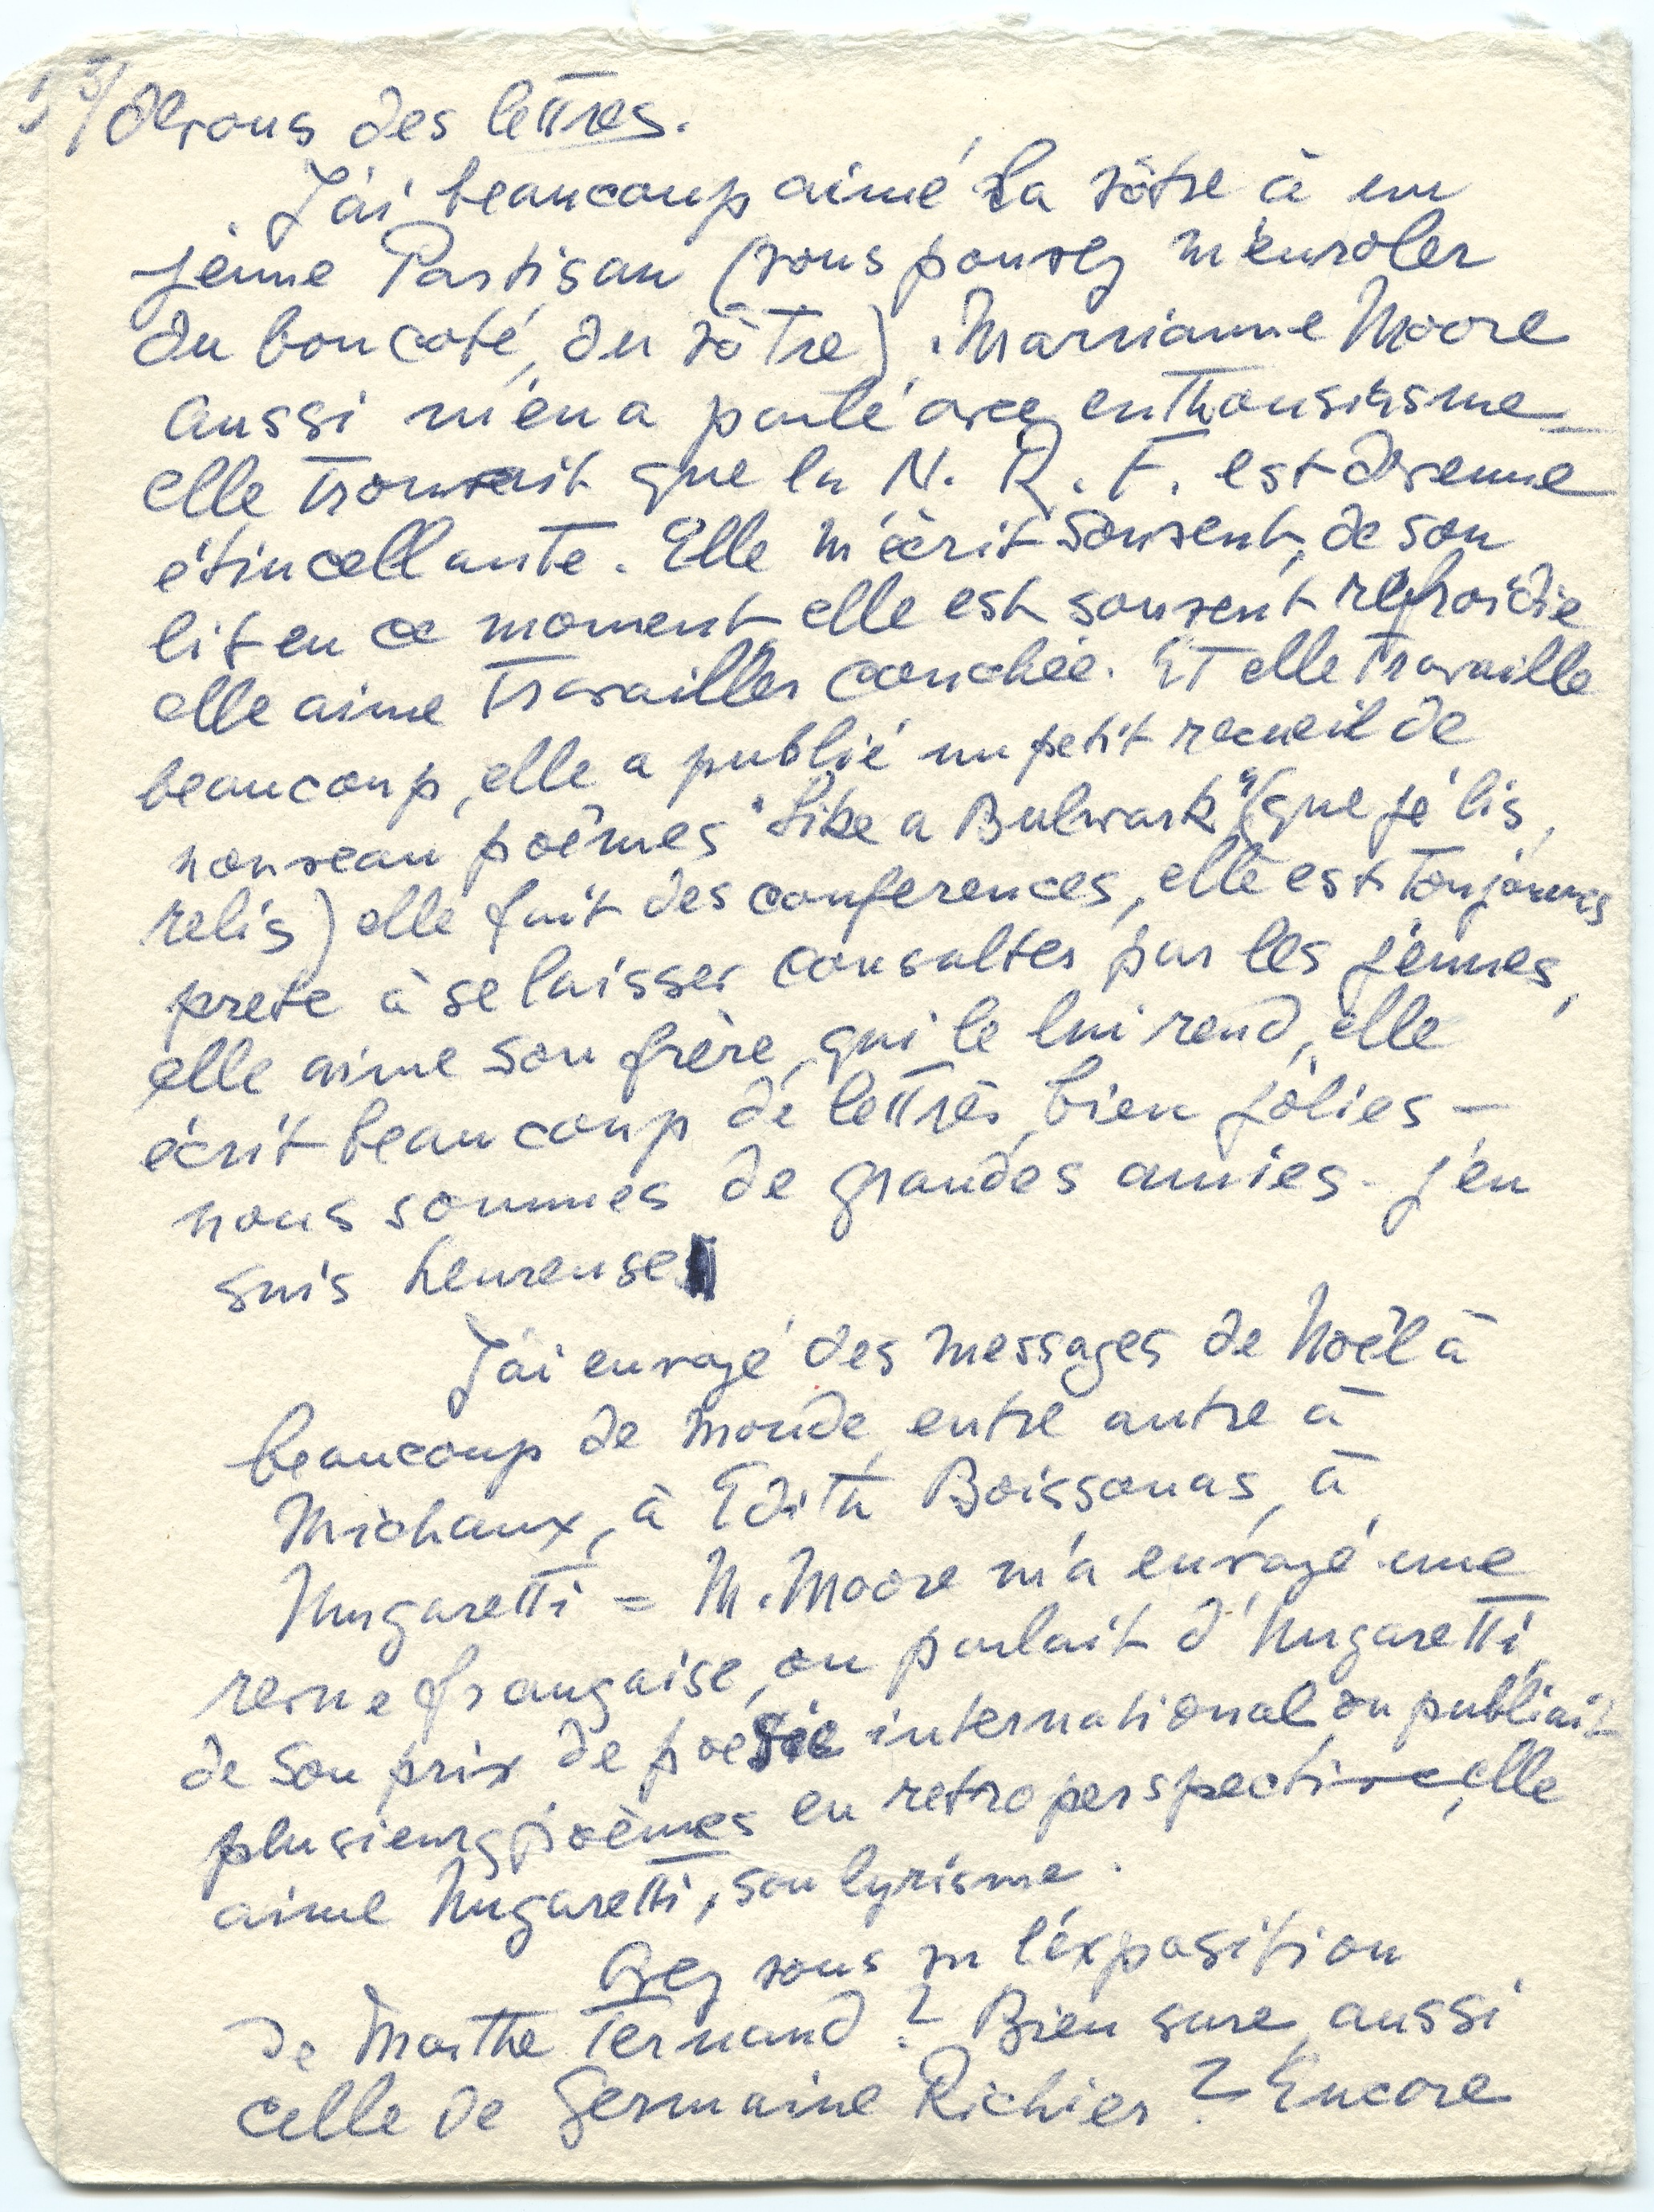 3/ devons des lettres.
J'ai beaucoup aimé la vôtre à un
jeune Partisan (vous pouvez m'enroler
du bon coté, du vôtre). Marrianne Moore
aussi m'en a parlé avec enthousiasme
elle trouvait que la N. R. F. est devenue
étincellante. Elle m'écrit souvent, de son
lit en ce moment, elle est souvent refroidie
elle aime travailler couchée. Et elle travaille
beaucoup, elle a publié un petit recueil de
nouveau poêmes "Like a Bulwark" (que je lis,
relis) elle fait des conferences, elle est toujours
prete à se laisser consulter par les jeunes,
elle aime son frère, qui le lui rend, elle
écrit beaucoup de lettres, bien jolies —
nous sommes de grandes amies - j'en
suis heureuse
J'ai envoyé des messages de Noël à
beaucoup de monde, entre autre à
Michaux, à Edith Boissonas, à
Hungaretti = M. Moore m'a envoyé une
revue française, on parlait d'Hungaretti,
de son prix de poésie international, on publiait
plusieurs poèmes en retroperspective, elle
aime Hungaretti, son lyrisme.
Avez vous vu l'éxposition
de Marthe Fernand ? Bien sure, aussi
celle de Germaine Richier ? Encore